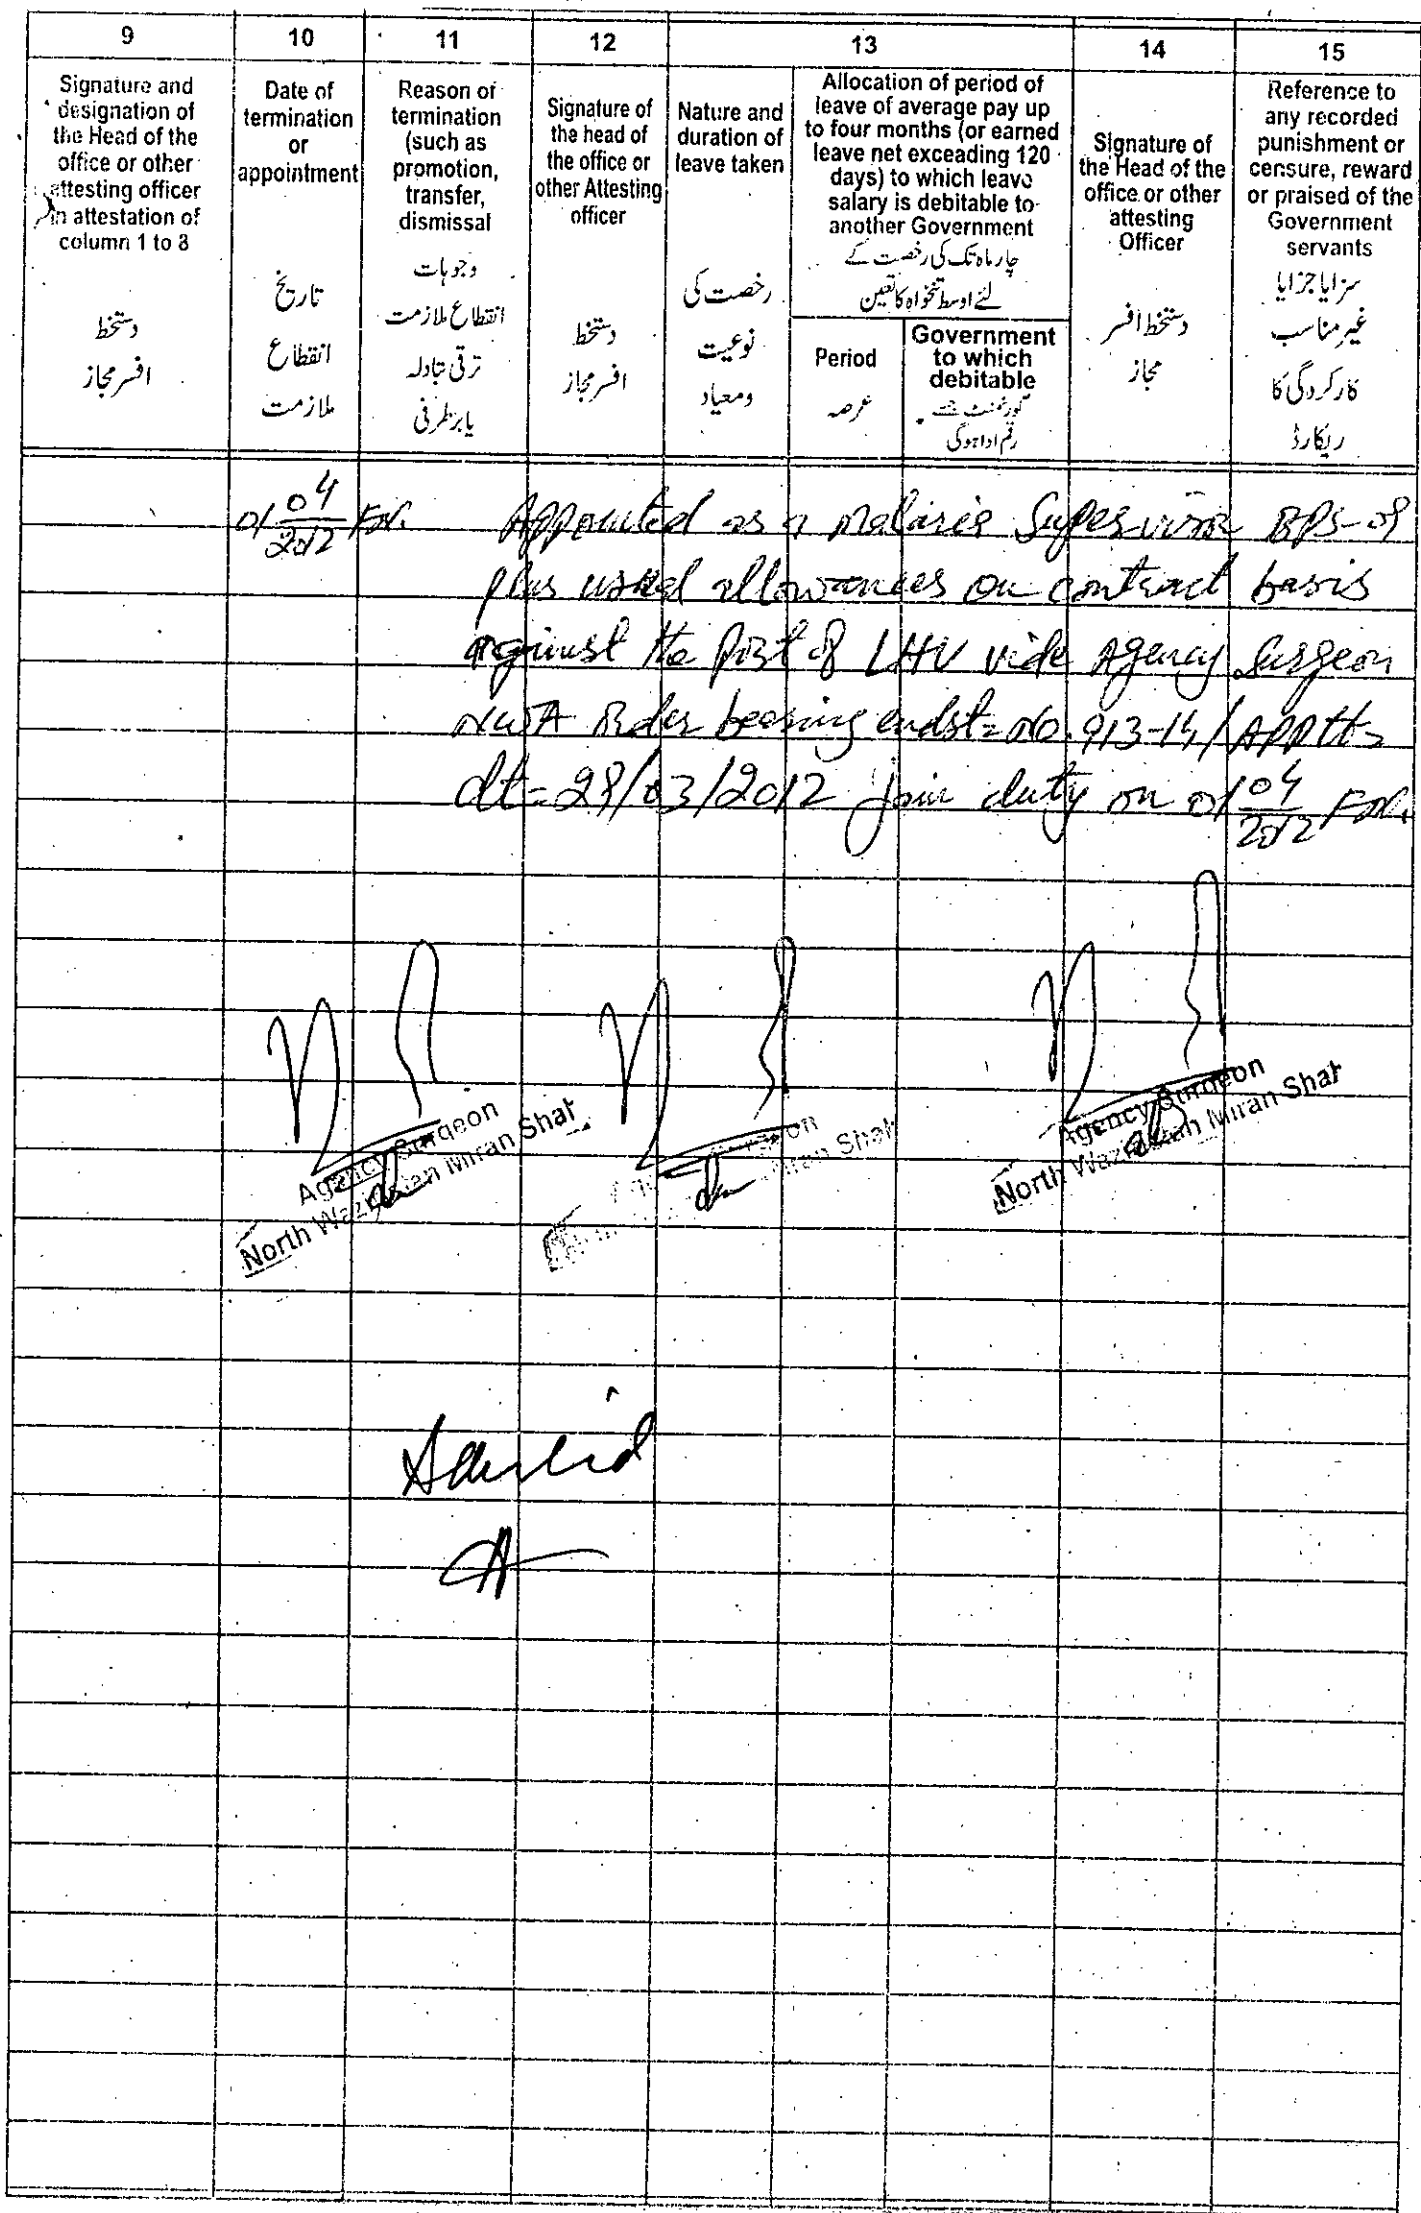 9 10 11 12 13 14 15
Signature and
designation of
the Head of the
office or other
attesting officer
in attestation of
column 1 to 8
دستخط
افسر مجاز
Date of
termination
or
appointment
تاریخ
انقطاع
ملازمت
Reason of
termination
(such as
promotion,
transfer,
dismissal
وجوہات
انقطاع ملازمت
ترقی تبادلہ
یا برطرفی
Signature of
the head of
the office or
other Attesting
officer
دستخط
افسر مجاز
Nature and
duration of
leave taken
رخصت کی
نوعیت
ومعیاد
Allocation of period of
leave of average pay up
to four months (or earned
leave net exceading 120
days) to which leave
salary is debitable to
another Government
چار ماہ تک کی رخصت کے
لئے اوسط تنخواہ کا تعین
Period
عرصہ
Government
to which
debitable
گورنمنٹ جسے
رقم ادا ہوگی
Signature of
the Head of the
office or other
attesting
Officer
دستخط افسر
مجاز
Reference to
any recorded
punishment or
censure, reward
or praised of the
Government
servants
سزا یا جزا یا
غیر مناسب
کارکردگی کا
ریکارڈ
01 04/2012 Appointed as a Malaria Supervisor BPS-
plus usual allowances on contract basis
against the post of LHV vide Agency Surgeon
NWA order bearing endst= No. 913-14/Appott=
dt= 28/03/2012 join duty on 01 04/2012
Agency Surgeon
North Waziristan Miran Shah
Miran Shah
Agency Surgeon
North Waziristan Miran Shah